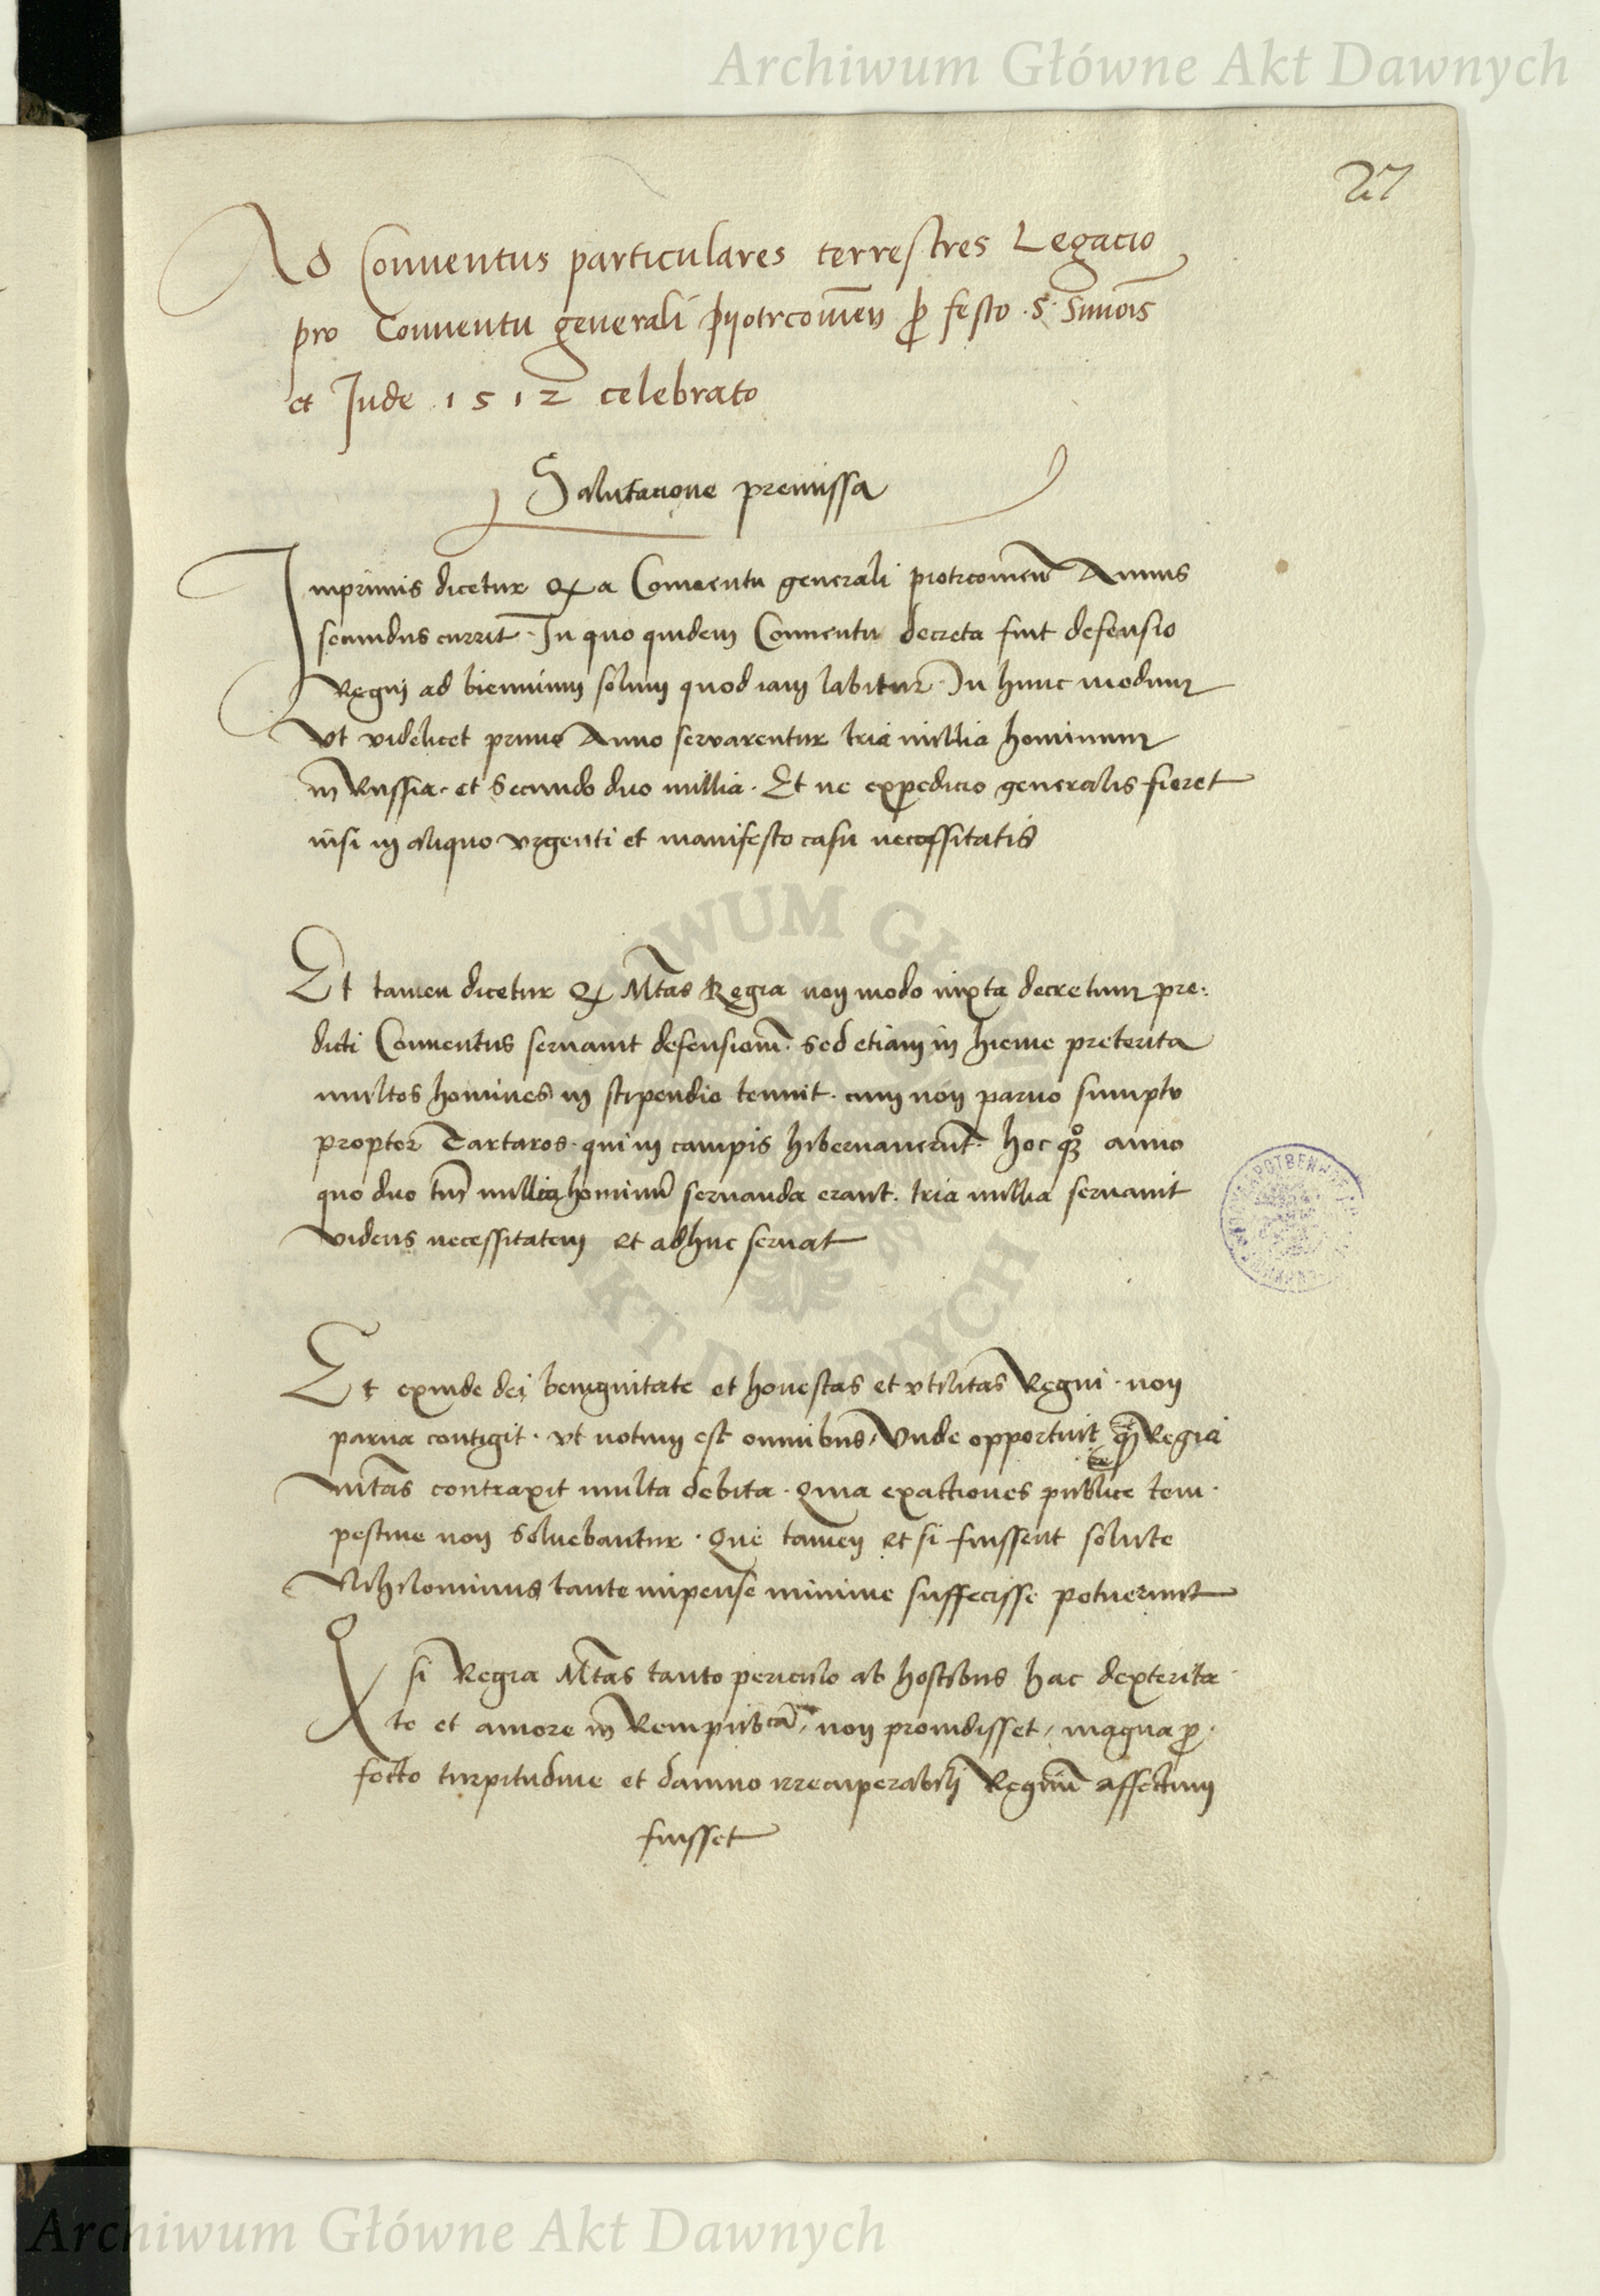 Archiwum Główne Akt Dawnych
27
Ad Conventus particulares terrestres Legacio
pro Conventu generali pyotrcouien̄ p̄ festo · S · Simoīs
et Jude · 1512 celebrato
Salutacione premissa
Inprimis dicetur Qꝫ a Conventu generali piotrcouien̄ Annus
secundus currit · In quo quidem Conventu decreta fuit defensio
Regni ad biennium solum quod iam labitur · In hunc modum
Vt videlicet primo Anno servarentur tria millia hominum
in Russia · et Secundo duo millia · Et ne expedicio generalis fieret
nisi in aliquo vrgenti et manifesto casu necessitatis
Et tamen dicetur Qꝫ Mtās Regia non modo iuxta decretum pre:
dicti Conuentus seruauit defensionē · Sed etiam in hieme preterita
multos homines in stipendio tenuit · cum non paruo sumptu
propter Tartaros · qui in campis hibernauerūt · hoc qꝫ anno
quo duo tm̄ millia hominū seruanda erant · tria millia seruauit
videns necessitatem et adhuc seruat
Et exinde dei benignitate et honestas et vtilitas Regni · non
parua contigit · vt notum est omnibus / Vnde opportuit Regia
mtās contraxit multa debita · Quia exactiones publice tem ·
pestiue non soluebantur · Que tamen et si fuissent solute
Nihilominus tante impense minime suffecisse potuerunt
Et si Regia Mtās tanto periculo ab hostibus hac dexterita
te et amore in Rempubcā / non prouidisset / magna p̄ ·
fecto turpitudine et damno irrecuperabili Regnū affectum
fuisset
ARCHIWUM GŁÓWNE AKT DAWNYCH
Archiwum Główne Akt Dawnych